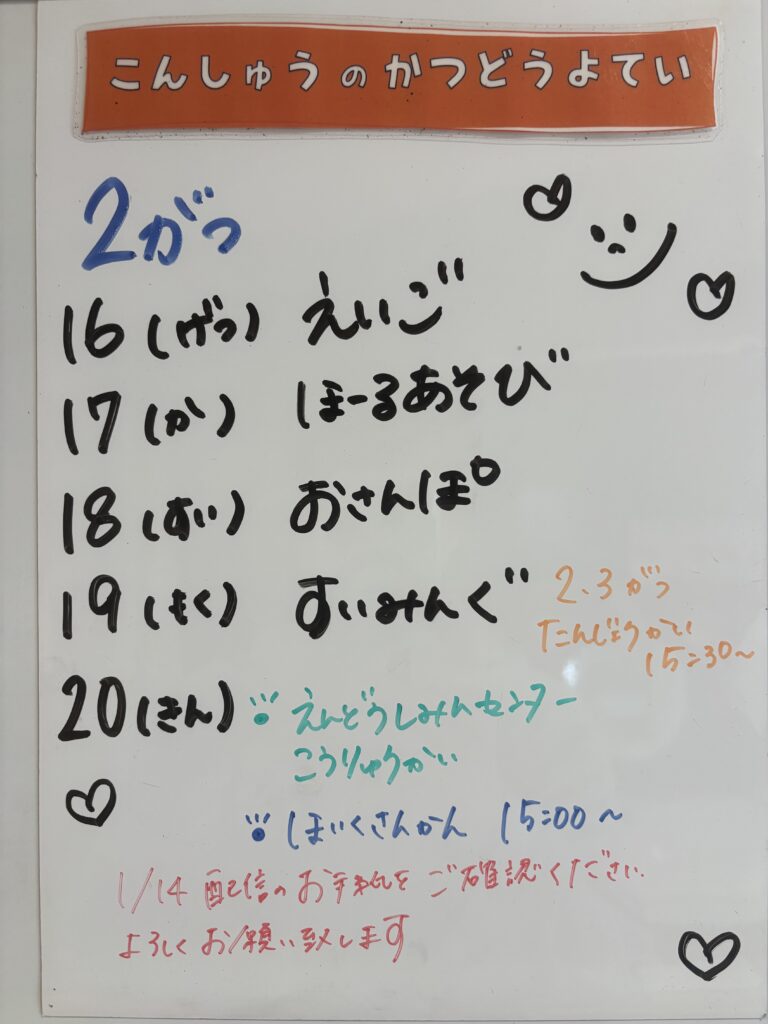 こんしゅうのかつどうよてい
2がつ
16(げつ) えいご
17(か) ほーるあそび
18(すい) おさんぽ
19(もく) すいみんぐ
2.3がつ
たんじょうかい
15:30～
20(きん) えんどうしみんセンター
こうりゅうかい
ほいくさんかん 15:00～
1/14 配信のお手紙をご確認ください
よろしくお願い致します